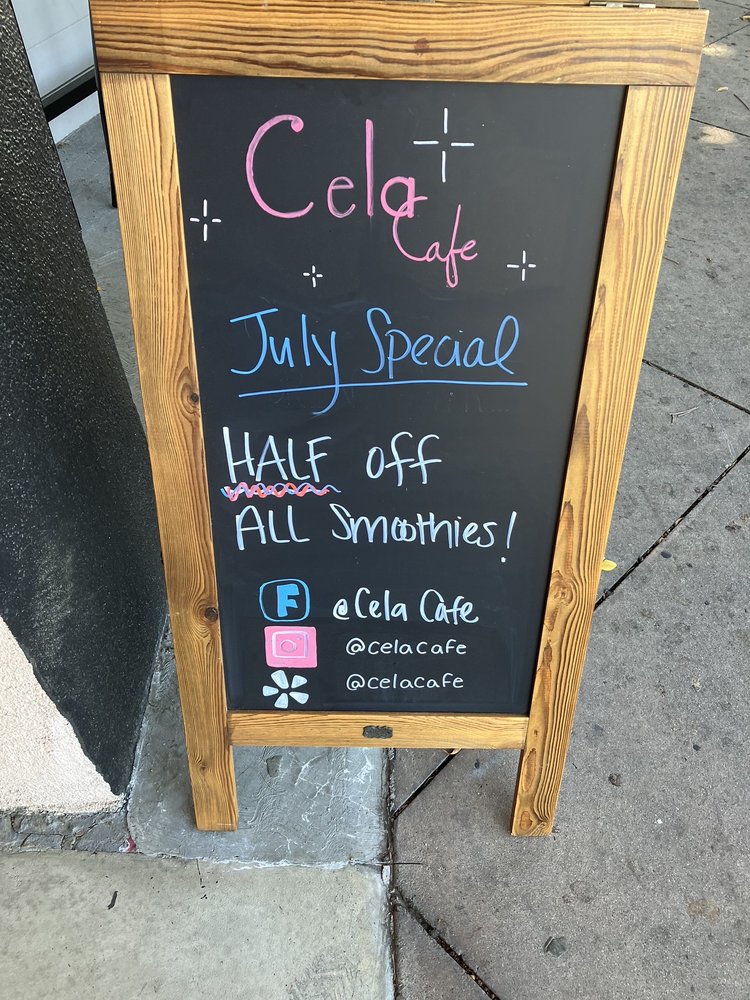 Cela
Cafe
July Special
HALF off
ALL Smoothies!
F @Cela Cafe
@celacafe
@celacafe